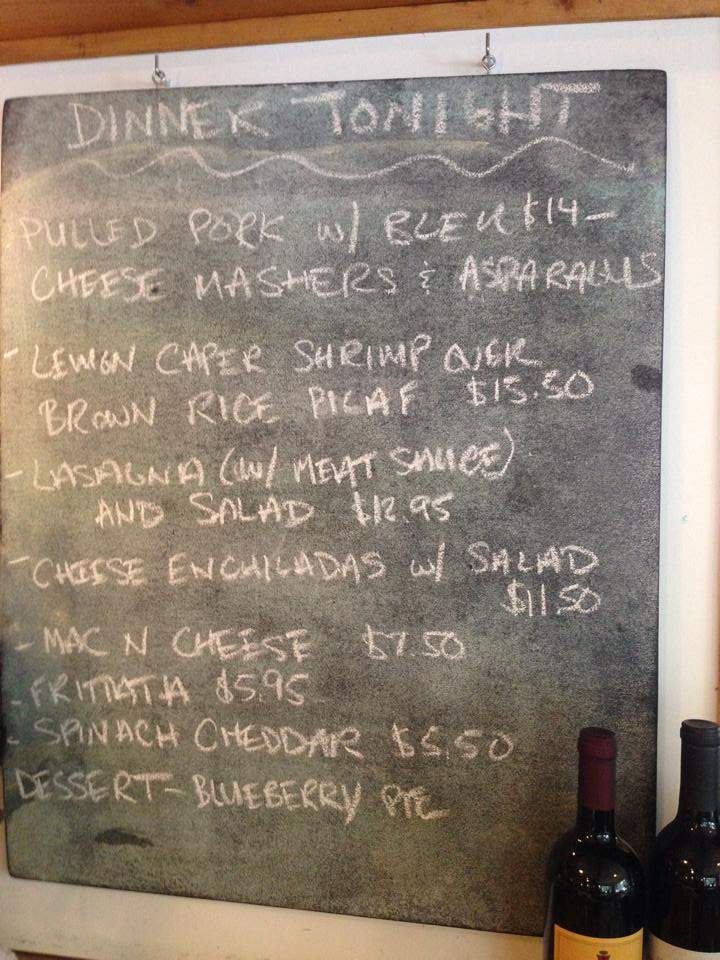 DINNER TONIGHT
- PULLED PORK w/ BLEU $14-
CHEESE MASHERS & ASPARAGUS
- LEMON CAPER SHRIMP OVER
BROWN RICE PILAF $15.50
- LASAGNA (W/ MEAT SAUCE)
AND SALAD $12.95
- CHEESE ENCHILADAS w/ SALAD
$11.50
- MAC N CHEESE $7.50
- FRITTATA $5.95
- SPINACH CHEDDAR $5.50
DESSERT - BLUEBERRY PIE